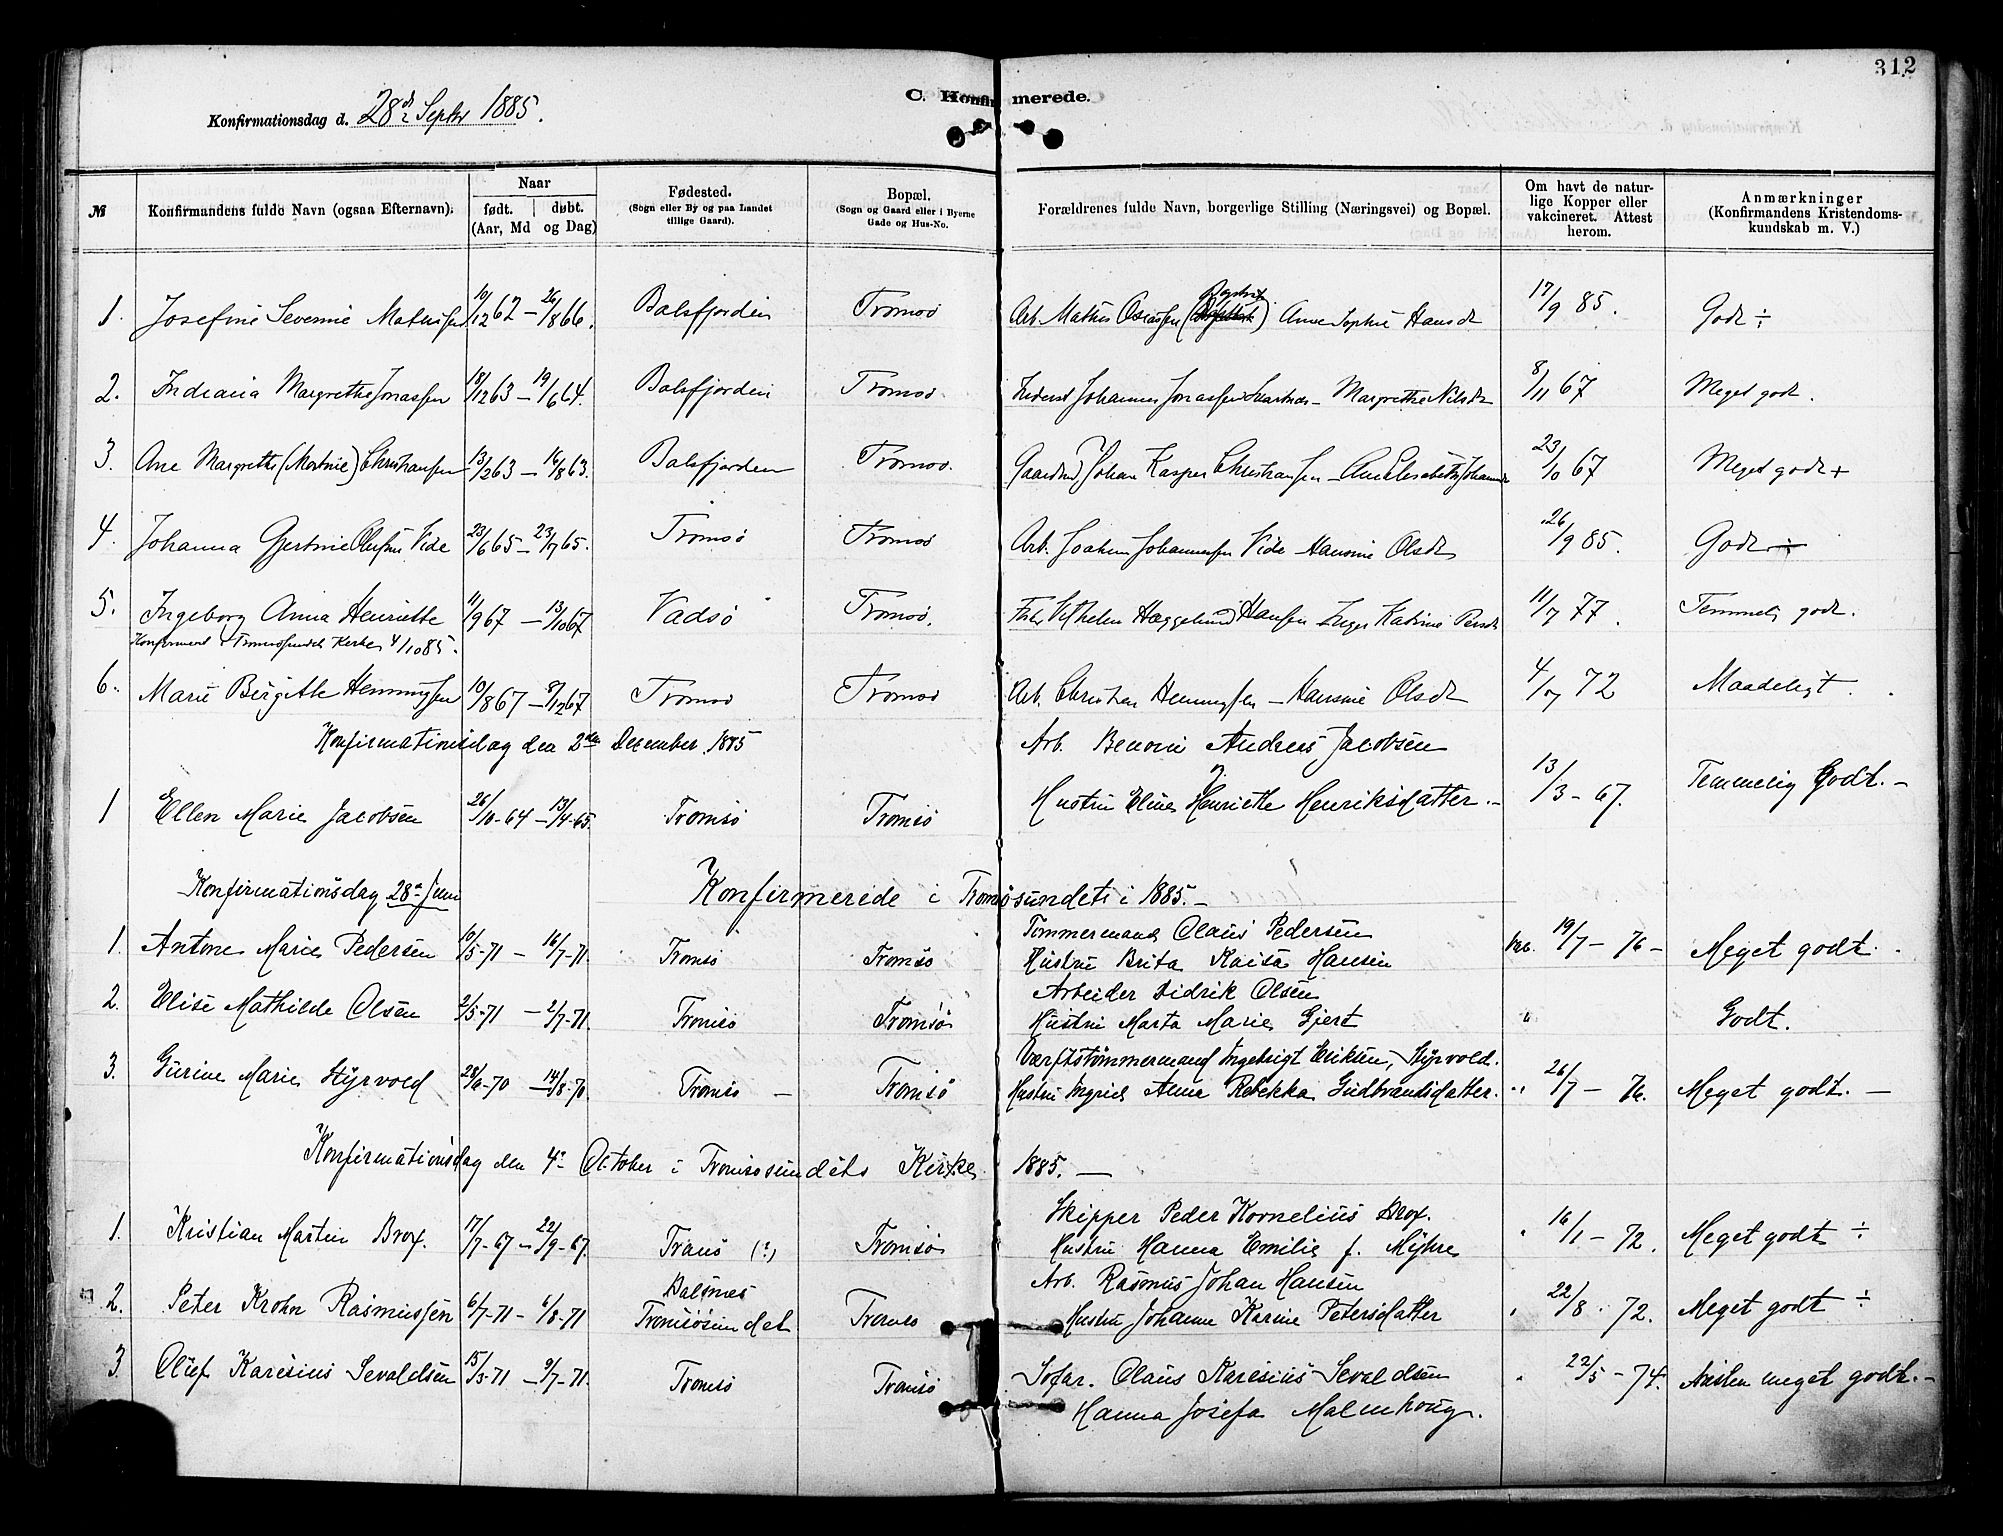 312
C. Konfirmerede.
Konfirmationsdag d. 28de Septbr 1885.
№
Konfirmandens fulde Navn (ogsaa Efternavn).
Naar
født. | døbt.
(Aar, Md og Dag)
Fødested.
(Sogn eller By og paa Landet
tillige Gaard).
Bopæl.
(Sogn og Gaard eller i Byerne
Gade og Hus-No.
Forældrenes fulde Navn, borgerlige Stilling (Næringsvei) og Bopæl.
Om havt de natur-
lige Kopper eller
vakcineret. Attest
herom.
Anmærkninger
(Konfirmandens Kristendoms-
kundskab m. V.)
1. Josefine Severine Mathisen 10/12 62 – 26/8 66. Balsfjorden Tromsø Arb. Mathis Anne Sophie Hansdt 17/9 85. Godt ÷
2. Indiania Margrethe Jonassen 18/12 63 – 19/6 64. Balsfjorden Tromsø. Johannes Jonassen – Margrethe Nilsdt 8/11 67 Meget godt.
3. Ane Margrethe Christiansen 13/2 63 – 16/8 63. Balsfjorden Tromsø. Johan Kasper Christiansen – 23/10 67 Meget godt +
4. Johanna Gjertine Vide 23/6 65 – 23/7 65. Tromsø Tromsø Arb. Joakim Johannessen Vide – Hansine Olsdt 26/9 85. Godt ÷
5. Ingeborg Anna Henriette 11/9 67 – 13/10 67 Vadsø Tromsø. Vilhelm Hæggelund Hansen Inger Katrine Persdt 11/7 77. Temmelig godt.
Konfirmert i Tromsøsundets Kirke 4/10 85.
6. Marie Birgitte Henningsen 10/8 67 – 8/12 67 Tromsø Tromsø Arb. Christian Henningsen – Hansine Olsdt 4/7 72 Maadeligt.
Konfirmationsdag den 2den December 1885
Arb. Benoni Andreas Jacobsen
1 Ellen Marie Jacobsen 26/10-64 – 13/4-65. Tromsø Tromsø Hustru Eline Henriette Henriksdatter. – 13/3 – 67. Temmelig Godt. –
Konfirmationsdag 28de Juni Konfirmerede i Tromsøsundet i 1885. –
Tømmermand Olaus Pedersen
1. Antone Marie Pedersen 10/5-71 – 16/7-71. Tromsø Tromsø Hustru Brita Kaisa Hansen 19/7 – 76 – Meget godt.
Arbeider Didrik Olsen
2. Elise Mathilde Olsen 2/5-71 – 2/7-71. Tromsø Tromsø Hustru Marta Marie Gjert " Godt.
Værftstømmermand Ingebrigt Eriksen, Styrvold.
3. Gurine Marie Styrvold 28/6-70 – 14/8-70. Tromsø – Tromsø Hustru Ingrid Anna Rebekka Gudbrandsdatter. " 26/7 – 76. Meget godt. –
Konfirmationsdag den 4de October i Tromsøsundets Kirke 1885. –
Skipper Peder Kornelius Brox.
1. Kristian Martin Brox. 17/7-67 – 22/9-67. Tranø (?) Tromsø Hustru Hanna Emilie f. Myhre " 16/1 – 72. Meget godt ÷
Balsnes Arb. Rasmus Johan Hansen
2. Peter Krohn Rasmussen 6/7-71 – 6/8-71 Tromsøsundet Tromsø Hustru Johanne Karine Petersdatter " 22/8 – 72. Meget godt ÷
3 Oluf Karesius Sevaldsen 15/3-71 – 9/7-71. Tromsø Tromsø Olaus Karesius Sevaldsen " 22/5 – 74. Næsten meget godt. –
Hanna Josefa Malmhoug.